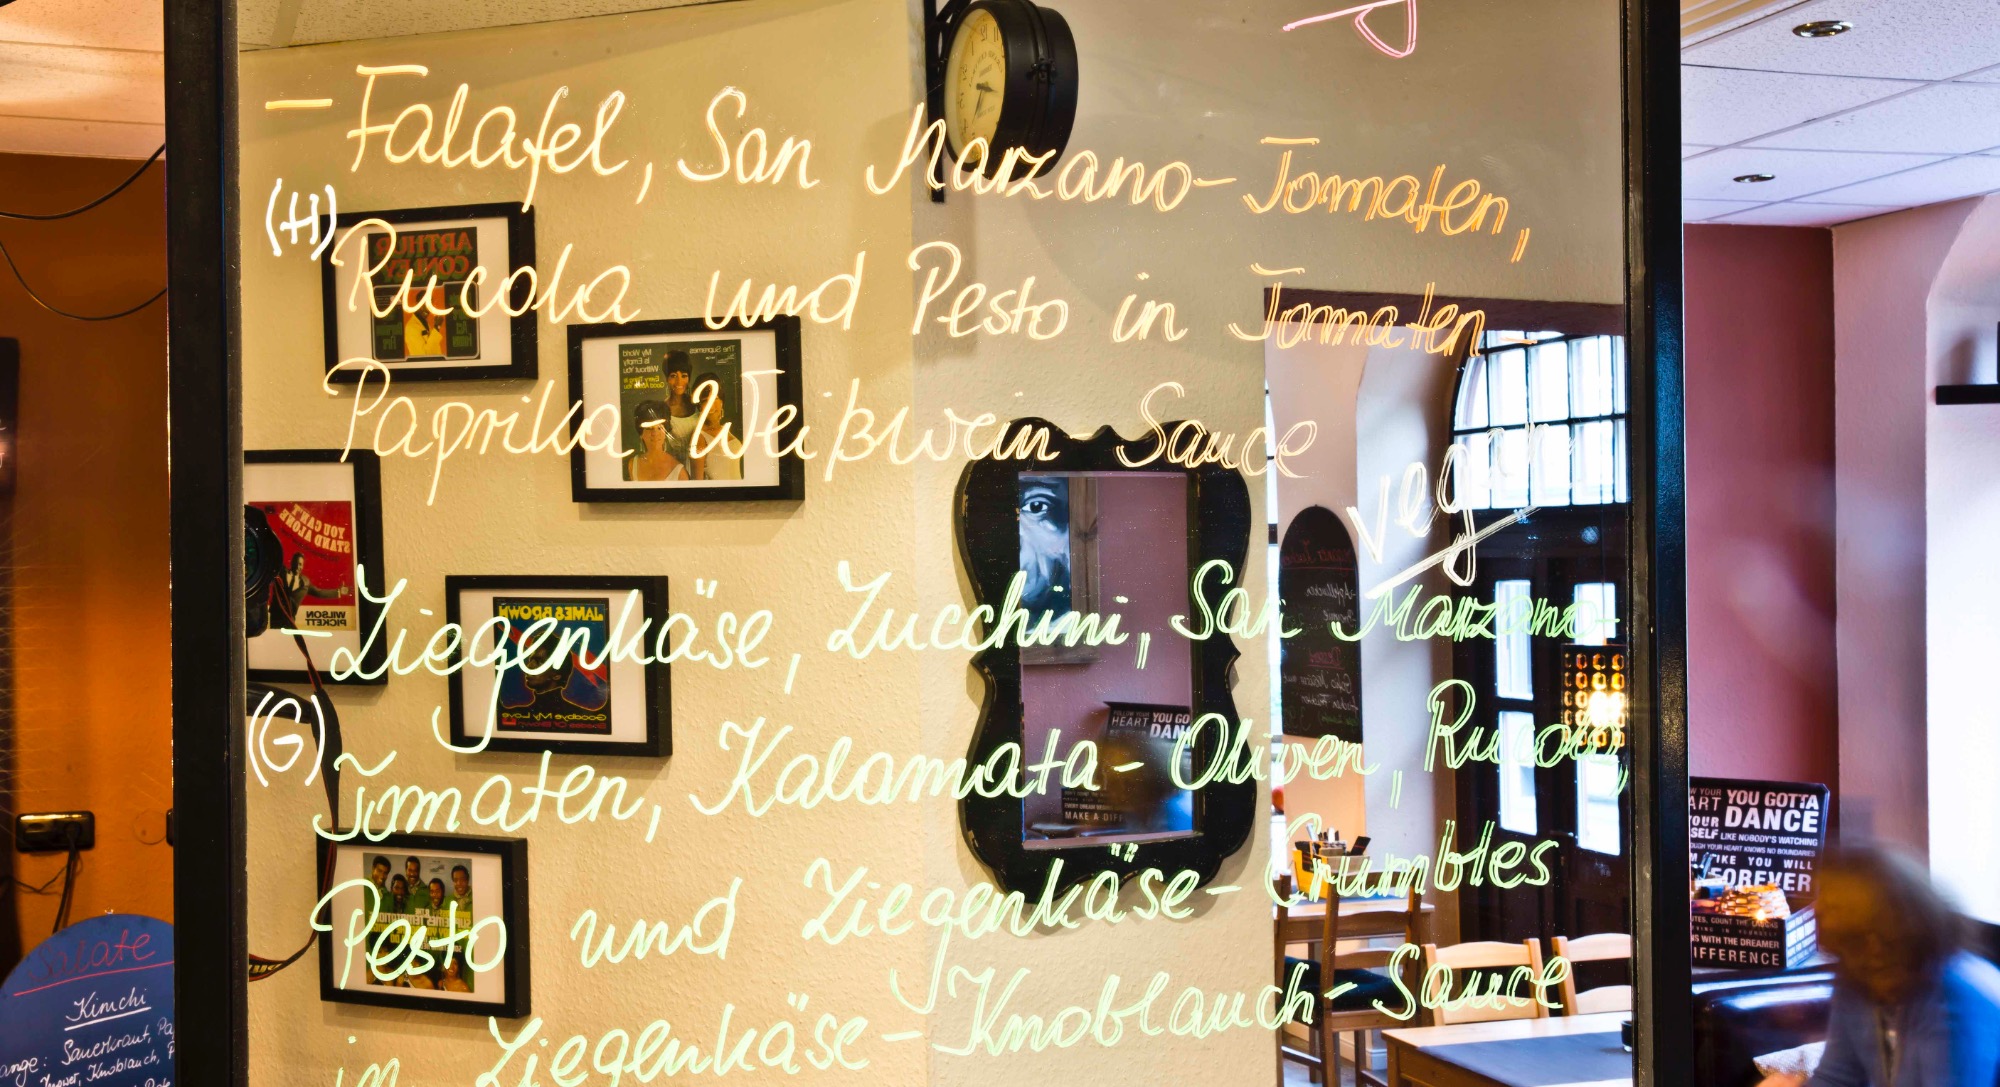 – Falafel, San Marzano-Tomaten,
(H)
Rucola und Pesto in Tomaten-
Paprika-Weißwein Sauce
vegan
– Ziegenkäse, Zucchini, San Marzano-
(G)
Tomaten, Kalamata-Oliven, Rucola,
Pesto und Ziegenkäse-Crumbles
in Ziegenkäse-Knoblauch-Sauce
ARTHUR
CONLEY
The Supremes
My World
Is Empty
Without You
YOU CAN'T
STAND ALONE
WILSON
PICKETT
JAMES BROWN
Goodbye My Love
HEART YOU GO
DAN
MAKE A DIFF
Dessert
YOU GOTTA
DANCE
LIKE NOBODY'S WATCHING
YOUR HEART KNOWS NO BOUNDARIES
LIKE YOU WILL
FOREVER
COUNT THE
WITH THE DREAMER
DIFFERENCE
Salate
Kimchi
Sauerkraut,
Knoblauch,